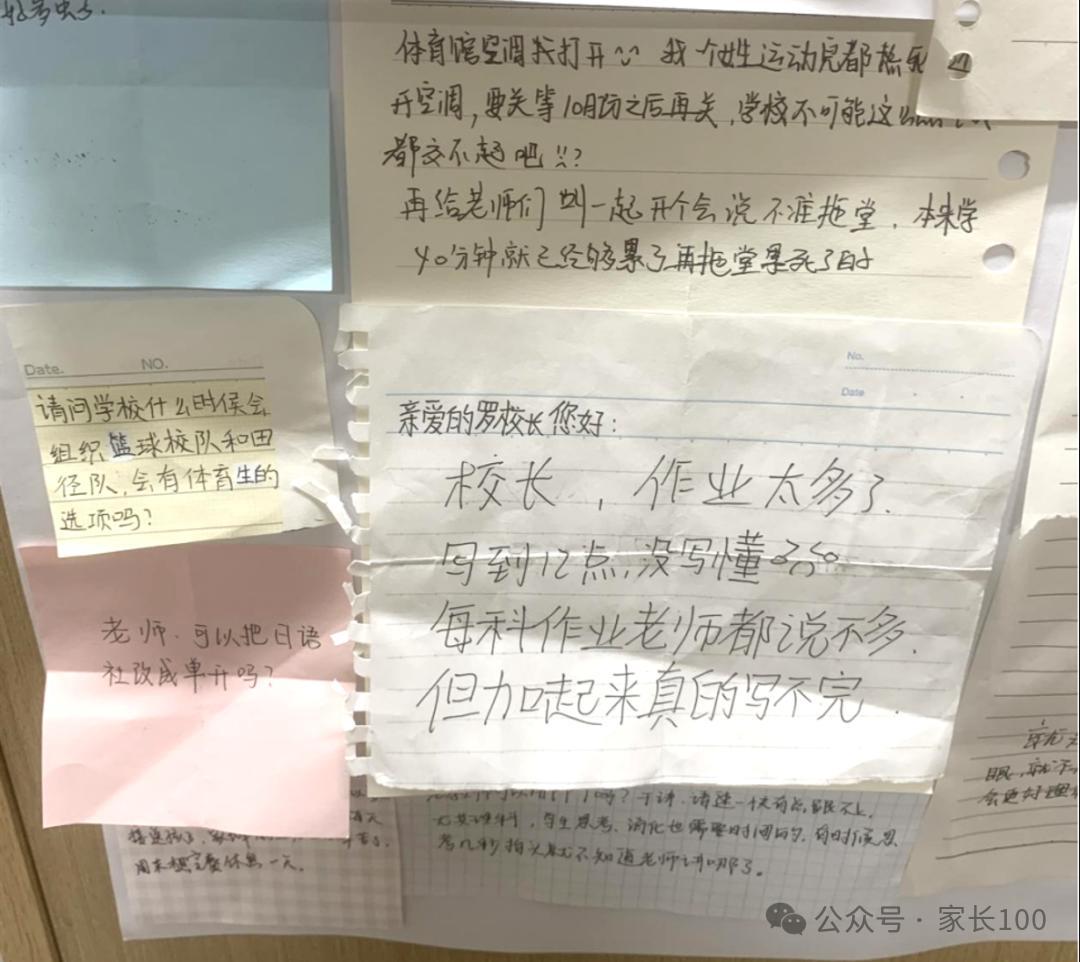 体育馆空调找打开 我个姓生运动完都热死
开空调，要关等10月份之后再关，学校不可能这么
都交不起吧!!?
再给老师们叫一起开个会说不准拖堂，本来学
40分钟就已经够累了再拖堂累死了时
Date. NO.
请问学校什么时侯会
组织篮球校队和田
径队，会有体育生的
选项吗?
老师，可以把日语
社改成单开吗?
No.
Date
亲爱的罗校长您好:
校长，作业太多了.
写到12点，没写懂
每科作业老师都说不多.
但加起来真的写不完.
尤其理科，学生思考、消化也需要时间的，有时候思
考几秒抬头就不知道老师讲哪了。
周末想完整休息一天，
会更好理
公众号·家长100